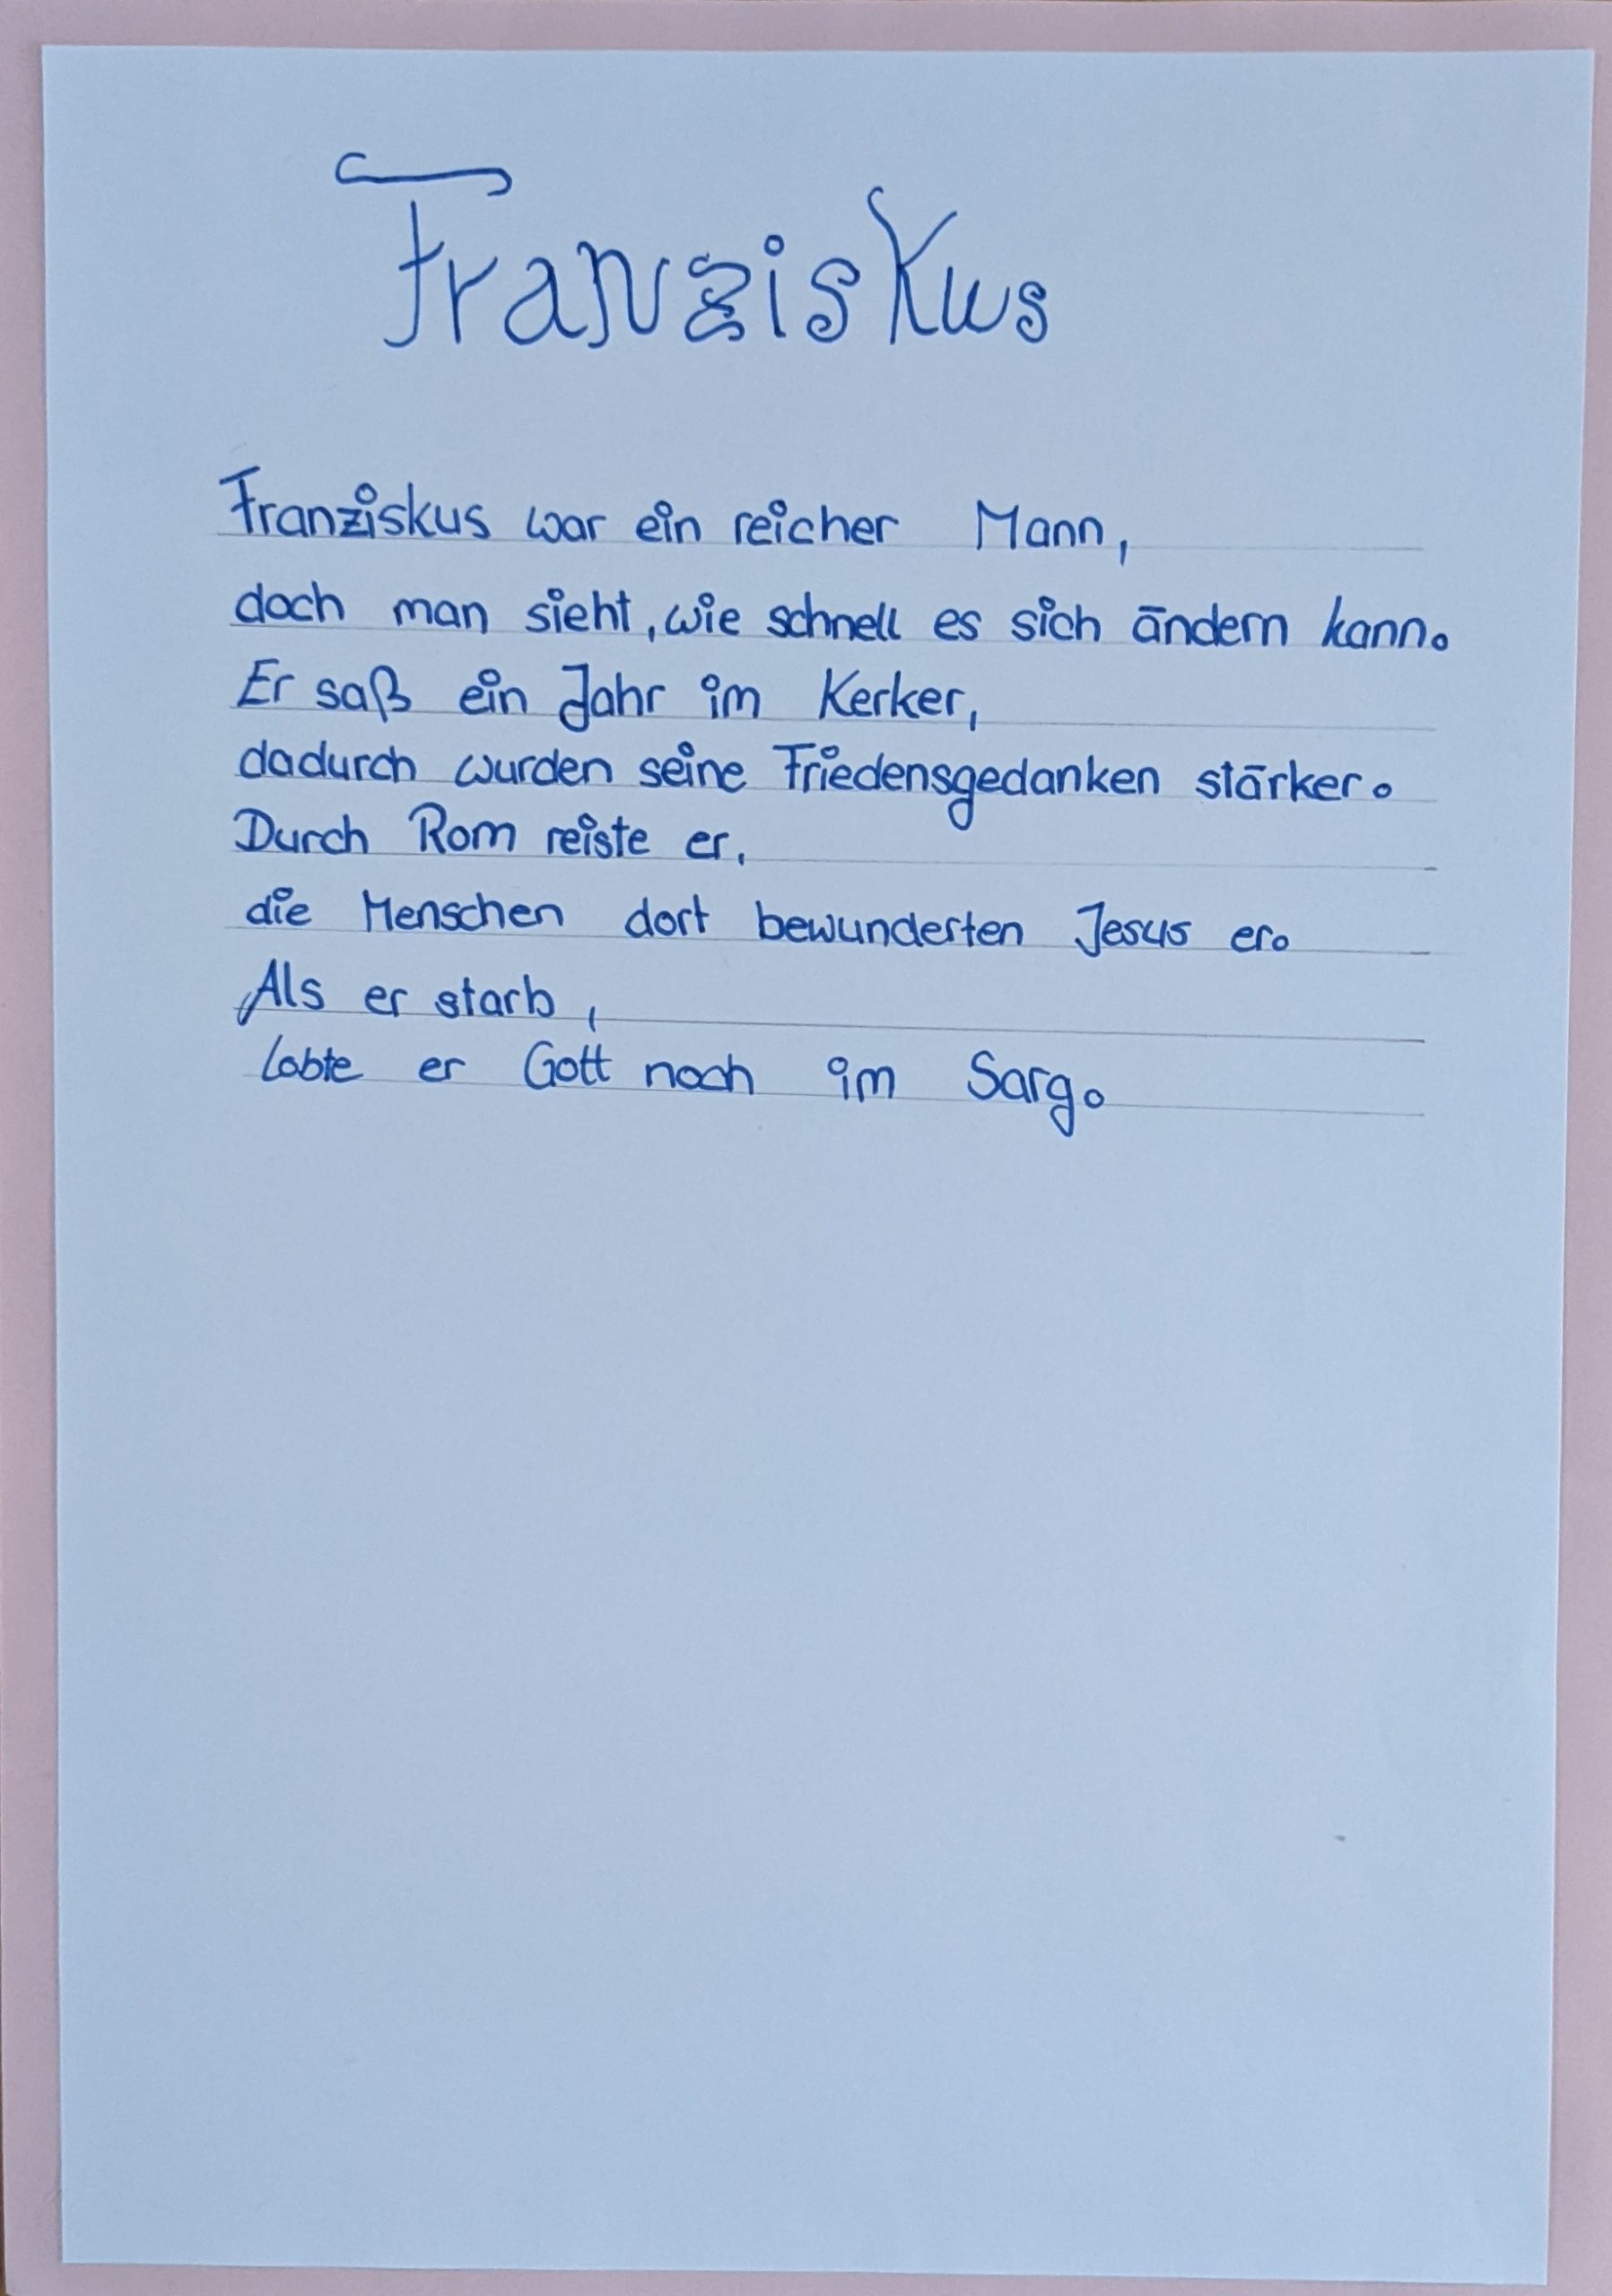 Franziskus
Franziskus war ein reicher Mann,
doch man sieht, wie schnell es sich ändern kann.
Er saß ein Jahr im Kerker,
dadurch wurden seine Friedensgedanken stärker.
Durch Rom reiste er,
die Menschen dort bewunderten Jesus er.
Als er starb,
lobte er Gott noch im Sarg.